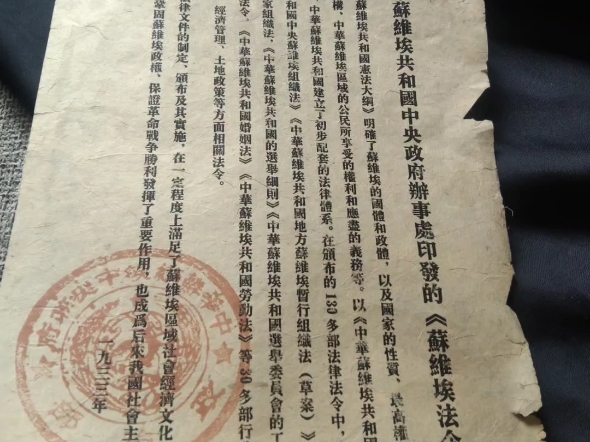 蘇維埃共和國中央政府辦事處印發的《蘇維埃法令
蘇維埃共和國憲法大綱》明確了蘇維埃的國體和政體，以及國家的性質、最高權
構、中華蘇維埃區域的公民所享受的權利和應盡的義務等。以《中華蘇維埃共和國
中華蘇維埃共和國建立了初步配套的法律體系。在頒布的130多部法律法令中，
和國中央蘇維埃組織法》《中華蘇維埃共和國地方蘇維埃暫行組織法（草案）》
家組織法，《中華蘇維埃共和國的選舉細則》《中華蘇維埃共和國選舉委員會的工
法令，《中華蘇維埃共和國婚姻法》《中華蘇維埃共和國勞動法》等30多部行
經濟管理、土地政策等方面相關法令。
律文件的制定、頒布及其實施，在一定程度上滿足了蘇維埃區域社會經濟文化
鞏固蘇維埃政權、保證革命戰爭勝利發揮了重要作用，也成爲后來我國社會主
一九三二年